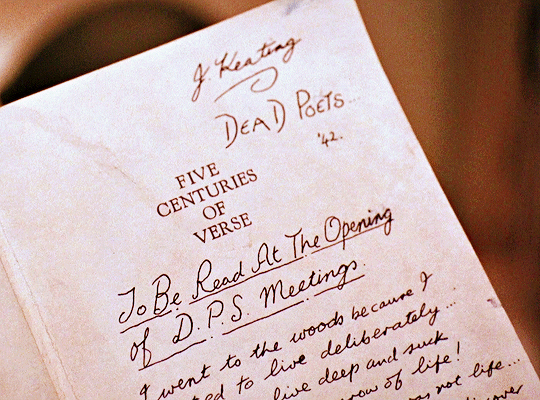 J. Keating
DEAD POETS...
'42.
FIVE
CENTURIES
OF
VERSE
To Be Read At The Opening
of D.P.S. Meetings.
I went to the woods because I
to live deliberately...
live deep and suck
of life!
not life...